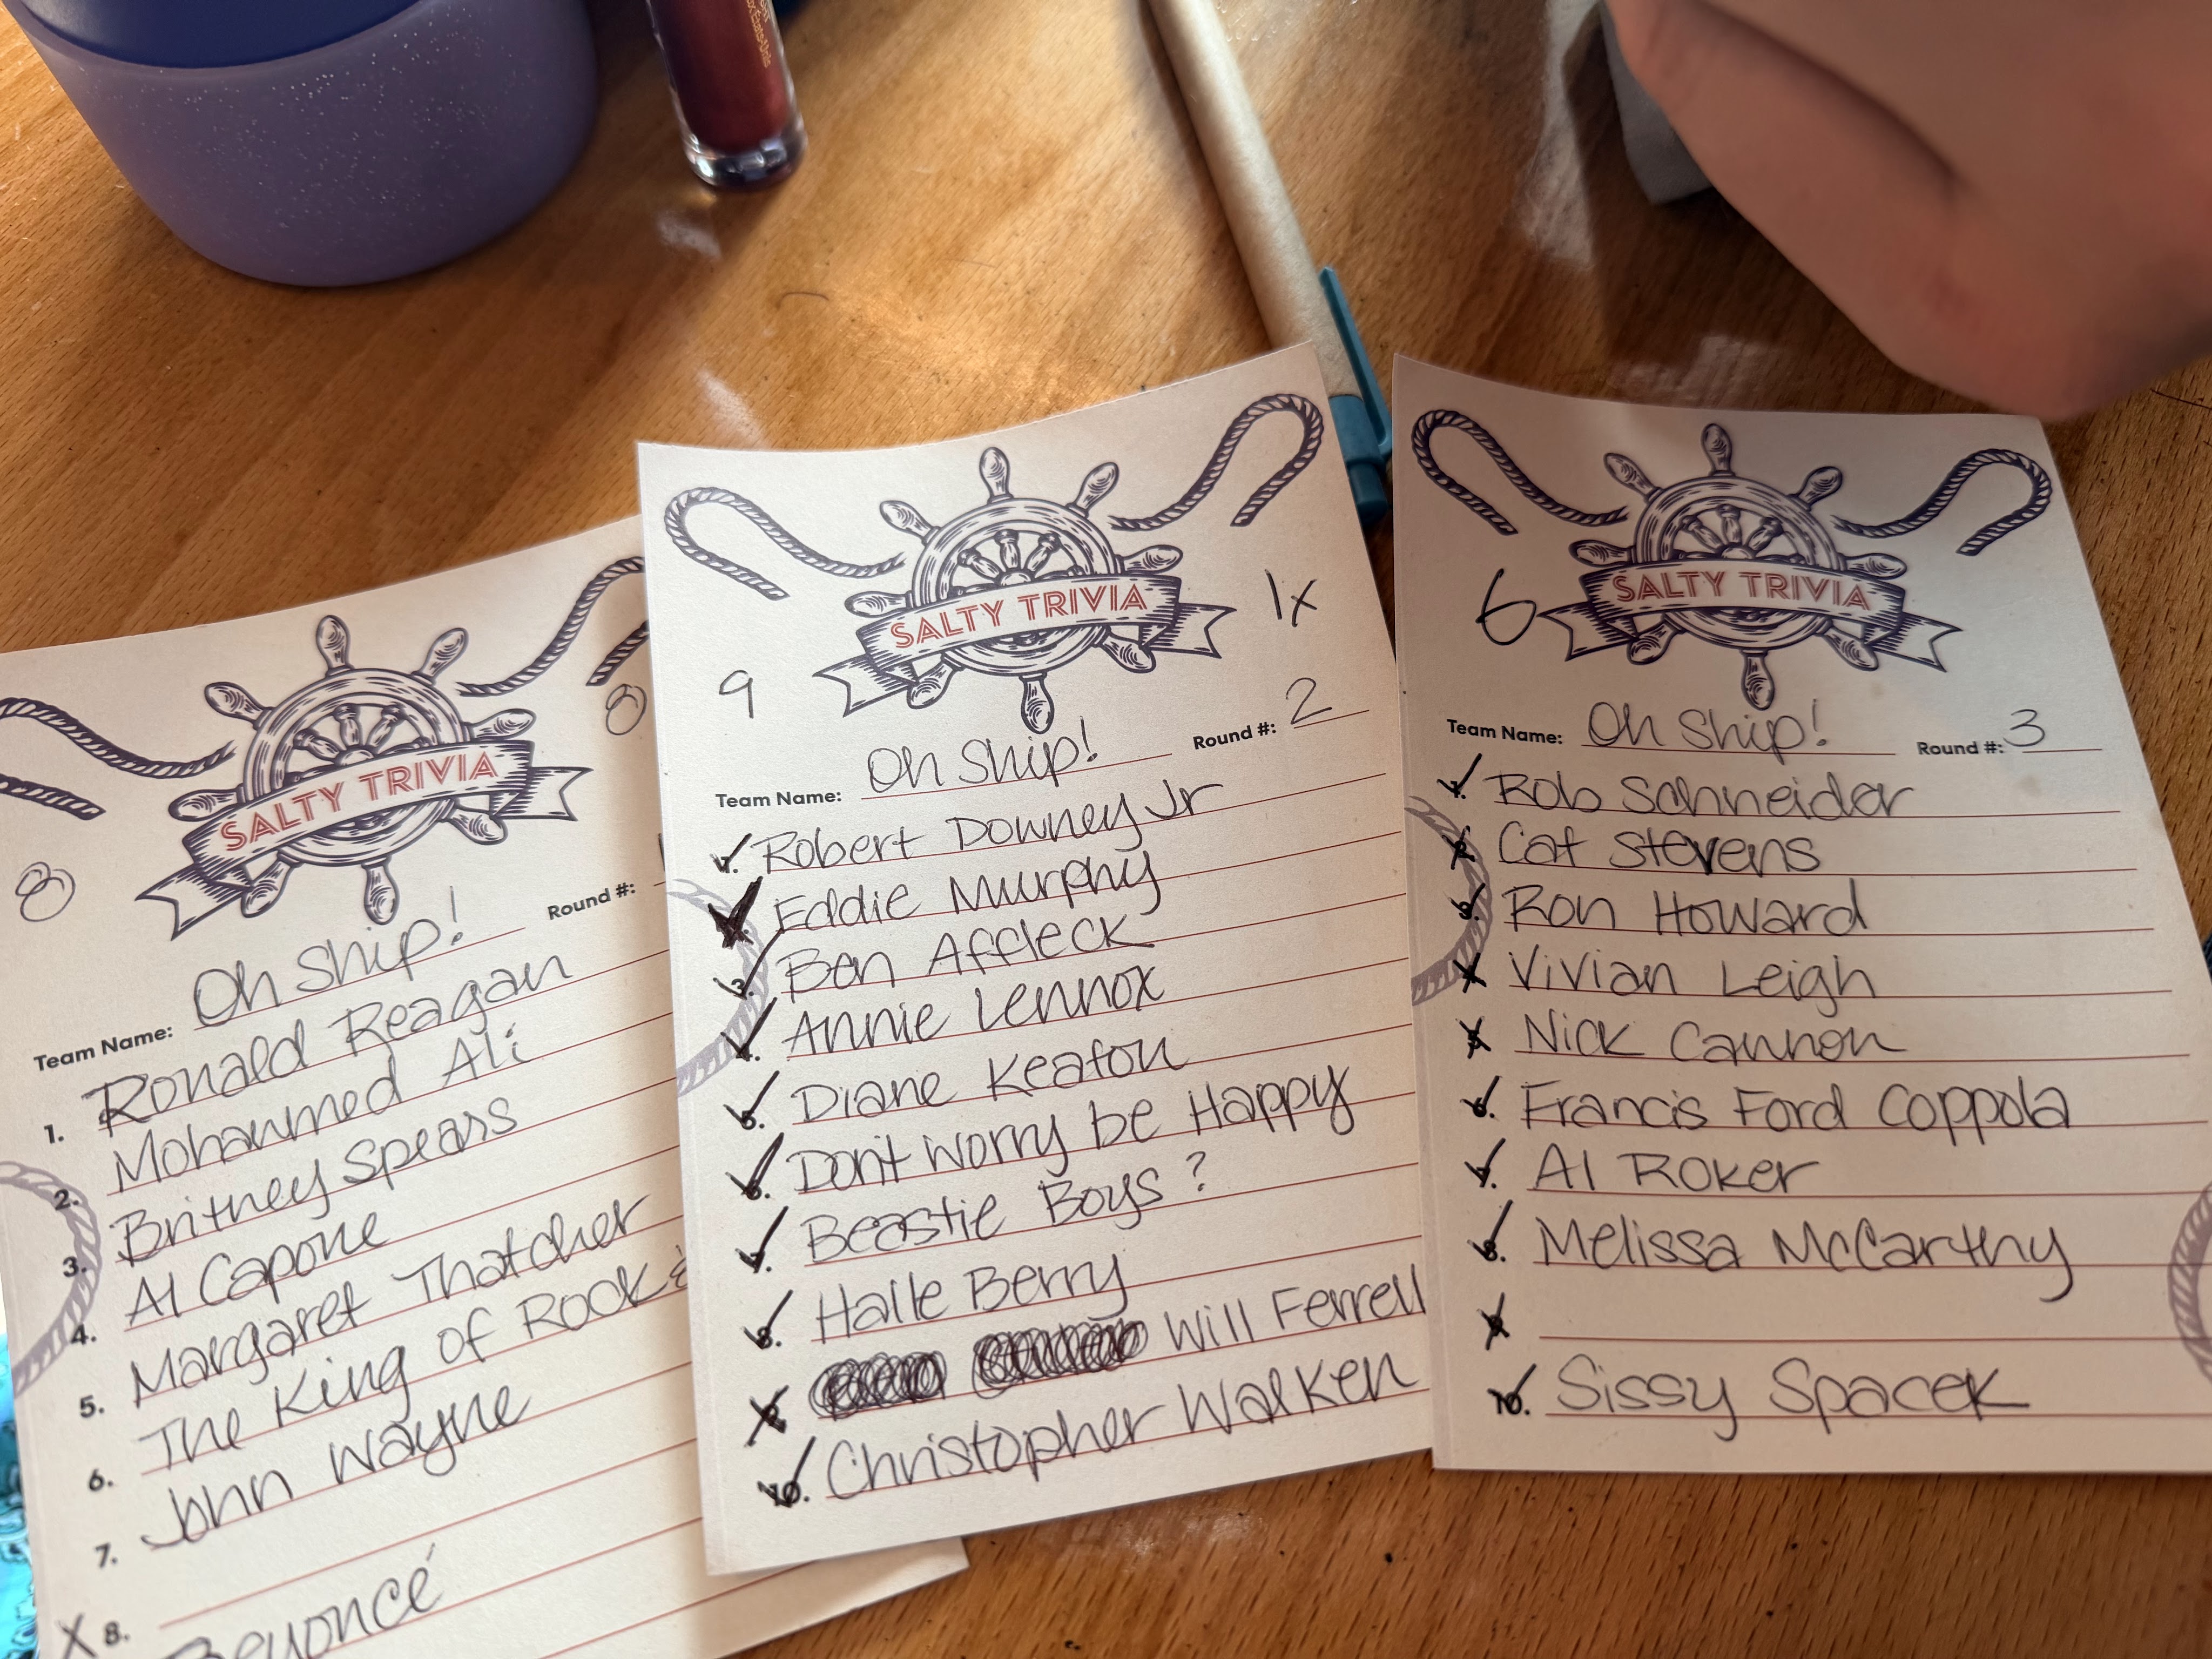 8
8
SALTY TRIVIA
Team Name: Oh Ship! Round #:
1. Ronald Reagan
2. Mohammed Ali
3. Britney Spears
4. Al Capone
5. Margaret Thatcher
6. The King of Rock &
7. John Wayne
X 8.
Beyoncé
SALTY TRIVIA
9
1x
Team Name: Oh Ship! Round #: 2
1. Robert Downey Jr
Eddie Murphy
3. Ben Affleck
4. Annie Lennox
5. Diane Keaton
6. Don't Worry be Happy
7. Beastie Boys?
8. Halle Berry
9. Will Ferrell
10. Christopher Walken
SALTY TRIVIA
6
Team Name: Oh Ship! Round #: 3
1. Rob Schneider
2. Cat Stevens
3. Ron Howard
4. Vivian Leigh
5. Nick Cannon
6. Francis Ford Coppola
7. Al Roker
8. Melissa McCarthy
9.
10. Sissy Spacek